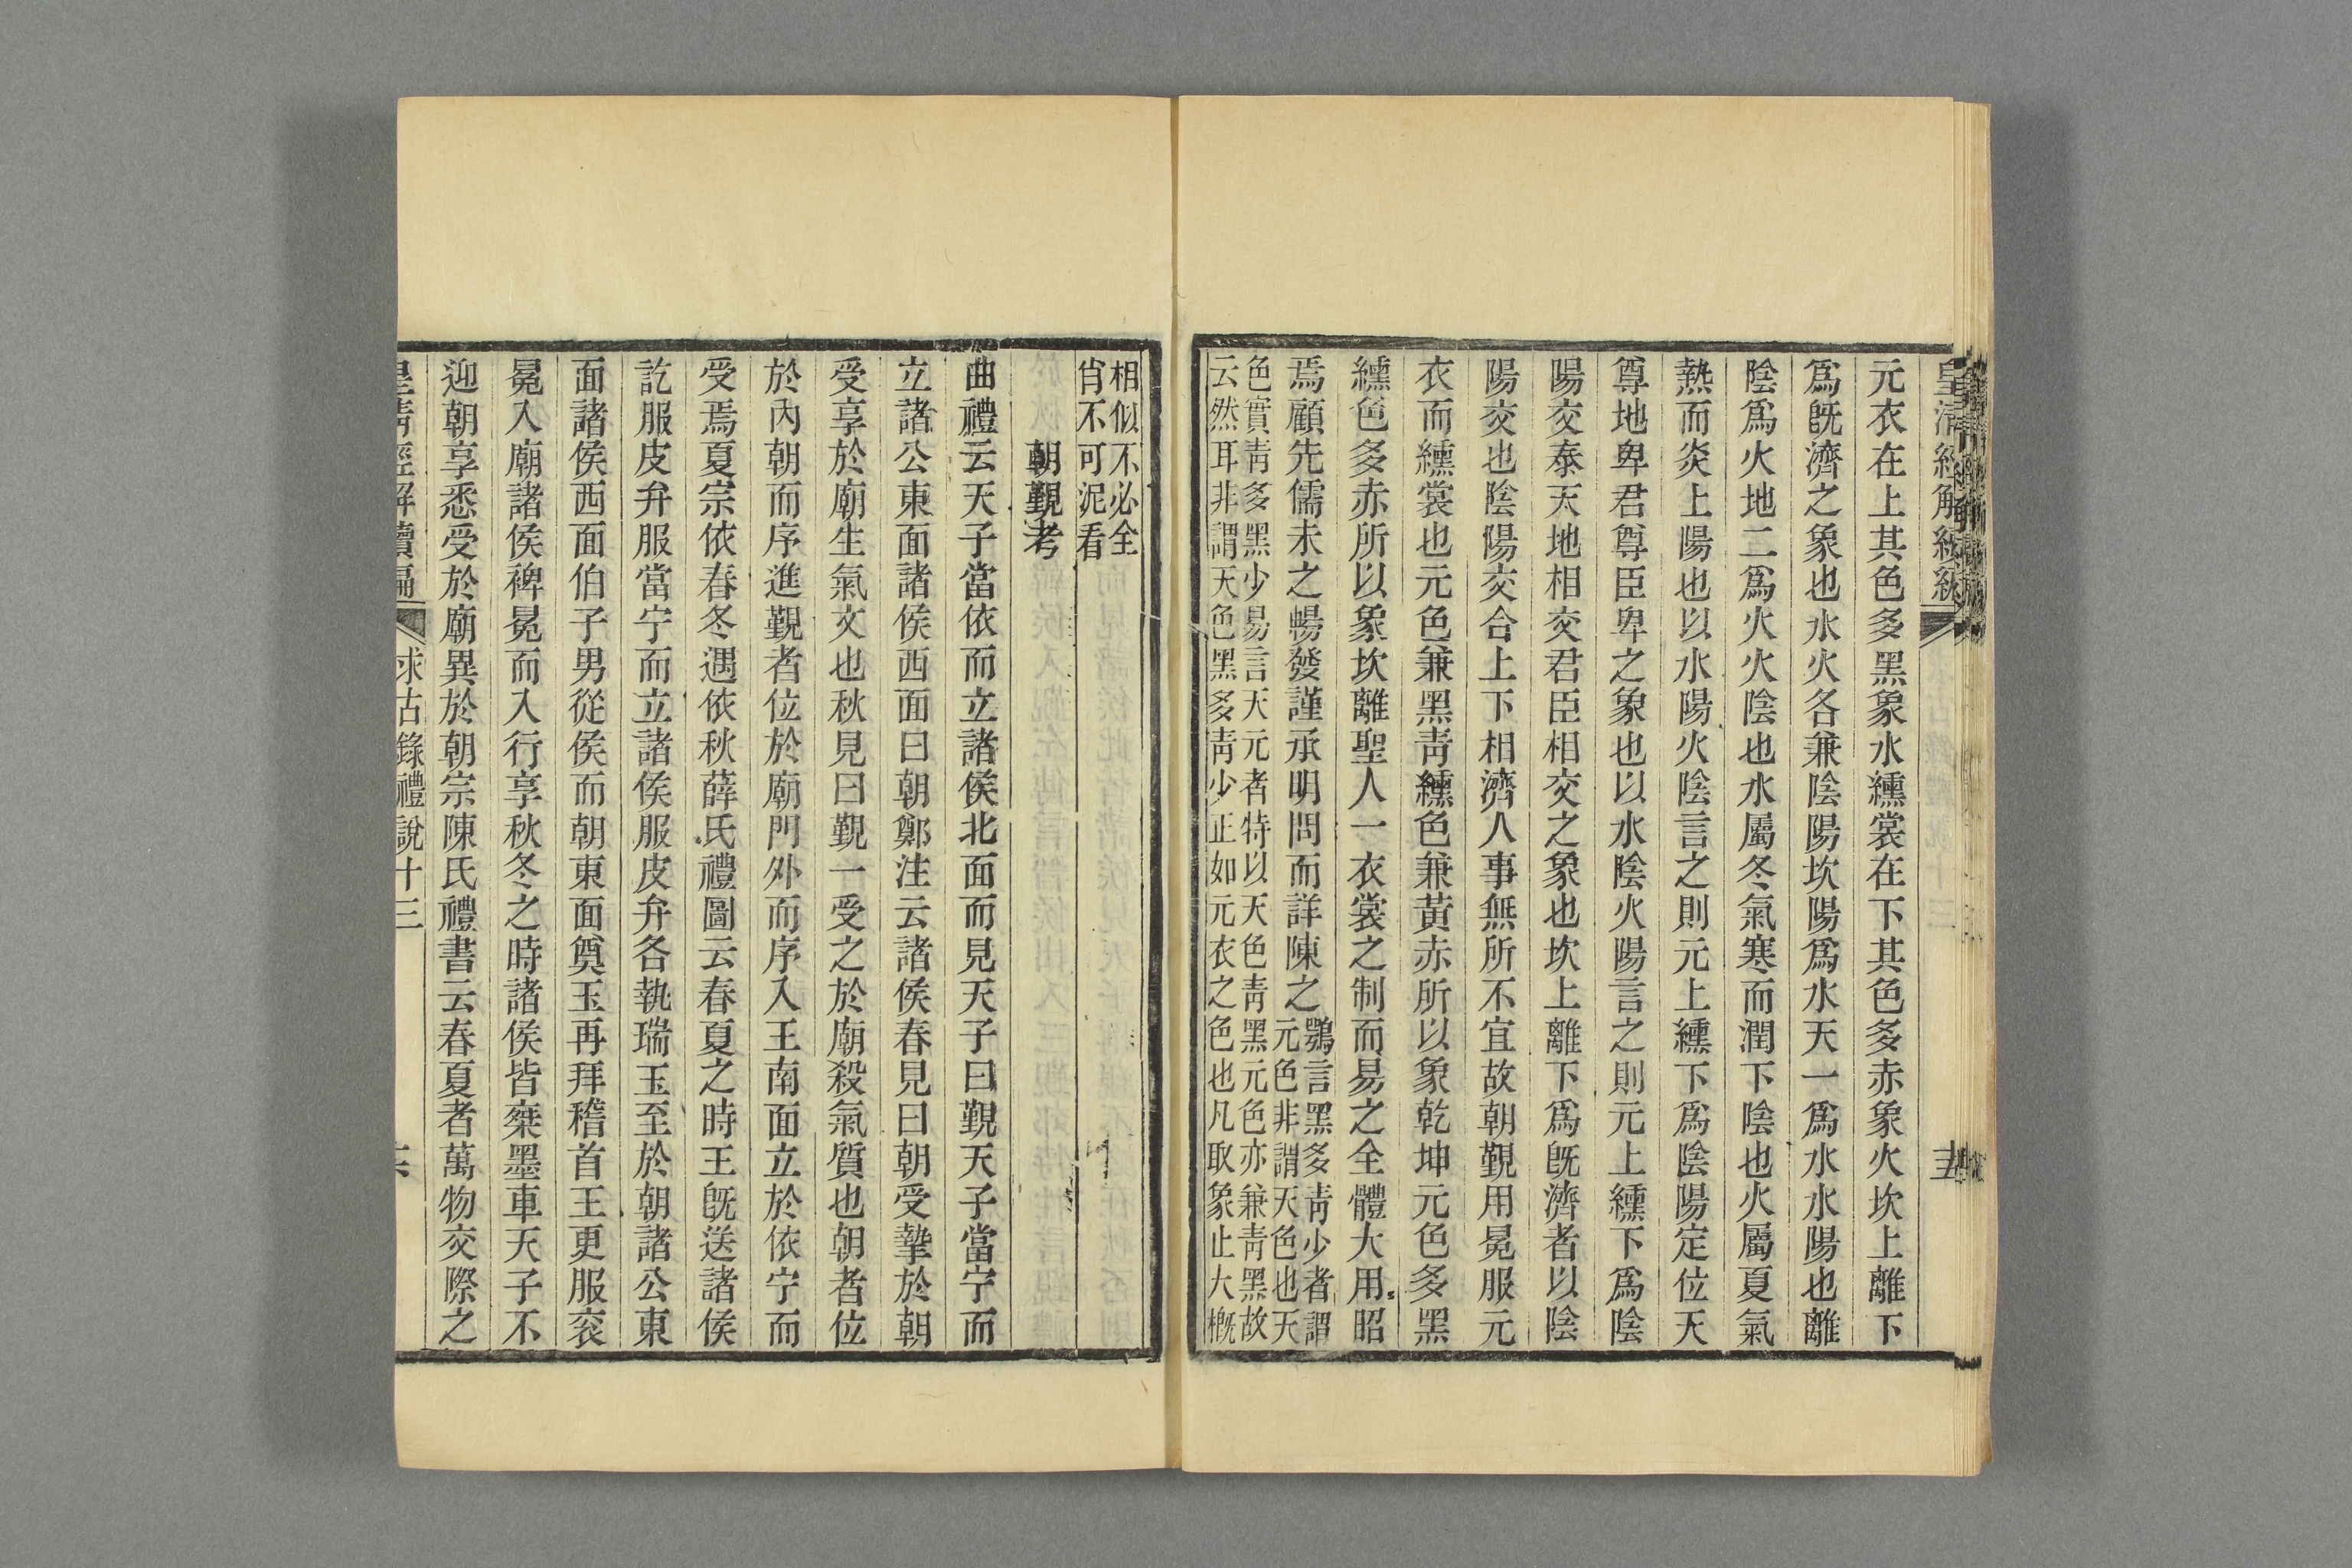 元衣在上其色多黑象水纁裳在下其色多赤象火坎上離下
爲旣濟之象也水火各兼陰陽坎陽爲水天一爲水水陽也離
陰爲火地二爲火火陰也水屬冬氣寒而潤下陰也火屬夏氣
熱而炎上陽也以水陽火陰言之則元上纁下爲陰陽定位天
尊地卑君尊臣卑之象也以水陰火陽言之則元上纁下爲陰
陽交泰天地相交君臣相交之象也坎上離下爲旣濟者以陰
陽交也陰陽交合上下相濟人事無所不宜故朝覲用冕服元
衣而纁裳也元色兼黑靑纁色兼黃赤所以象乾坤元色多黑
纁色多赤所以象坎離聖人一衣裳之制而易之全體大用昭
焉顧先儒未之暢發謹承明問而詳陳之
鶚言黑多靑少者謂
元色非謂天色也天
色實靑多黑少易言天元者特以天色靑黑元色亦兼靑黑故
云然耳非謂天色黑多靑少正如元衣之色也凡取象止大槪
相似不必全
肖不可泥看
朝覲考
曲禮云天子當依而立諸侯北面而見天子曰覲天子當宁而
立諸公東面諸侯西面曰朝鄭注云諸侯春見曰朝受摯於朝
受享於廟生氣文也秋見曰覲一受之於廟殺氣質也朝者位
於內朝而序進覲者位於廟門外而序入王南面立於依宁而
受焉夏宗依春冬遇依秋薛氏禮圖云春夏之時王旣送諸侯
訖服皮弁服當宁而立諸侯服皮弁各執瑞玉至於朝諸公東
面諸侯西面伯子男從侯而朝東面奠玉再拜稽首王更服衮
冕入廟諸侯裨冕而入行享秋冬之時諸侯皆椉墨車天子不
迎朝享悉受於廟異於朝宗陳氏禮書云春夏者萬物交際之
皇淸經解續編
求古錄禮說十三